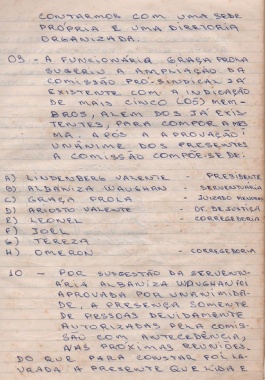 CONTARMOS COM UMA SEDE
PRÓPRIA E UMA DIRETORIA
ORGANIZADA.
09 - A FUNCIONÁRIA GRAÇA PROLA
SUGERIU A AMPLIAÇÃO DA
COMISSÃO PRO-SINDICAL JÁ
EXISTENTE COM A INDICAÇÃO
DE MAIS CINCO (05) MEM-
BROS, ALEM DOS JÁ EXIS-
TENTES, PARA COMPOR A MES-
MA, APOS A APROVAÇÃO
UNÂNIME DOS PRESENTES
A COMISSÃO COMPÕE-SE DE:
A) LINDENBERG VALENTE - PRESIDENTE
B) ALBANIZA WAUGHAN - SERVENTUARIA
C) GRAÇA PROLA - JUIZADO MENORES
D) ARIOSTO VALENTE - OF. DE JUSTIÇA
E) LEONEL - CORREGEDORIA
F) JOEL
G) TEREZA
H) OMERON - CORREGEDORIA
10 - POR SUGESTÃO DA SERVENTU-
ÁRIA ALBANIZA WAUGHAN FOI
APROVADA POR UNANIMIDA-
DE, A PRESENÇA SOMENTE
DE PESSOAS DEVIDAMENTE
AUTORIZADAS PELA COMIS-
SÃO COM ANTECEDÊNCIA,
NAS PRÓXIMAS REUNIÕES.
DO QUE PARA CONSTAR FOI LA-
VRADA A PRESENTE QUE LIDA E